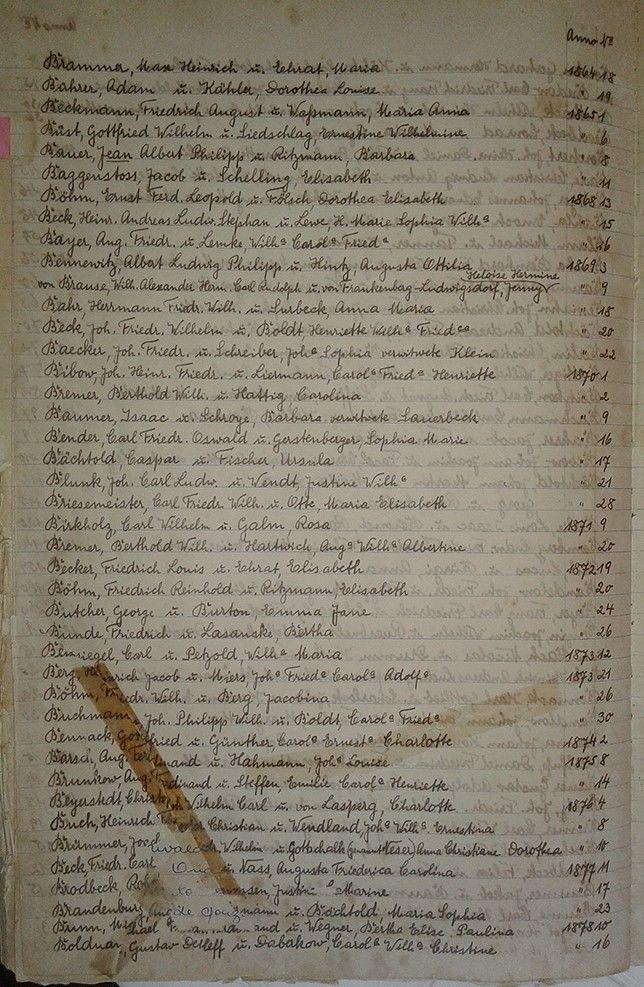 Anno №
Brammer, Max Heinrich u. Ehrat, Maria 1864 18
Bahrer, Adam u. Dorothea Louise " 19
Beckmann, Friedrich August u. Waßmann, Maria Anna 1865 1
Büst, Gottfried Wilhelm u. Liedschlag, Ernestine Wilhelmine " 6
Bauer, Jean Albert Philipp u. Ritzmann, Barbara " 8
Baggenstoss, Jacob u. Schelling, Elisabeth " 11
Böhm, Ernst Ferd. Leopold u. Fölsch, Dorothea Elisabeth 1868 13
Beck, Heinr. Andreas Ludw. Stephan u. Lewe, H. Marie Sophia Wilhª " 15
Bayer, Aug. Friedr. u. Lemke Wilhª Carolª Friedª " 16
Bennewitz, Albert Ludwig Philipp u. Hintz, Augusta Ottilia 1869 3
Heloise Hermine
von Brause, Wilh. Alexander Herm. Carl Rudolph u. von Frankenbag-Ludwigsdorf, Jenny " 9
Bahr, Herrmann Friedr. Wilh. u. Surbeck, Anna Maria " 18
Beck, Joh. Friedr. Wilhelm u. Boldt, Henriette Wilhª " 20
Baecker, Joh. Friedr. u. Schreiber, Johª Sophia verwitwete Klein " 22
Bibow, Joh. Heinr. Friedr. u. Liermann, Carolª Friedª Henriette 1870 1
Bremer, Berthold Wilh. u. Hattig, Carolina " 2
Baumer, Isaac u. Schroye, Barbara verwitwete Sauerbeck " 9
Bender, Carl Friedr. Oswald u. Gerstenberger, Sophia Marie " 16
Bächtold, Caspar u. Fischer, Ursula " 17
Blunk, Joh. Carl Ludw. u. Wendt, Justine Wilhª " 21
Briesemeister, Carl Friedr. Wilh. u. Otte, Maria Elisabeth " 28
Birkholz, Carl Wilhelm u. Galm, Rosa 1871 9
Bremer, Berthold Wilh. u. Hartwich, Augª Wilhª Albertine " 20
Becker, Friedrich Louis u. Ehrat Elisabeth 1872 19
Böhm, Friedrich Reinhold u. Ritzmann, Elisabeth " 20
Butcher, George u. Burton, Emma Jane " 24
Bunde, Friedrich u. Lasancke, Bertha " 26
Carl u. Petzold, Wilhª Maria 1873 12
Berg, Jacob u. Miers, Johª Friedª Carolª Adolfª 1873 21
Böhm, Friedr. Wilh. u. Berg, Jacobina " 26
Buchmann, Joh. Philipp Wilh. u. Boldt, Carolª Friedª " 30
Bennack, Gottfried u. Günther, Carolª Ernestª Charlotte 1874 2
Barsch, Aug. Ferdinand u. Hahmann, Johª Louise 1875 8
Brunkow, Aug. Ferdinand u. Steffen, Emilie Carolª Henriette " 14
Beyerstedt, Christoph Wilhelm Carl u. von Lasperg, Charlotte 1876 4
Buch, Heinrich Christian u. Wendland, Johª Wilhª Ernestina " 8
Brümmer, Wilhelm u. Gottschalk (genannt Weser) Anna Christiane Dorothea " 10
Beck, Friedr. Carl u. Nass, Augusta Friederica Carolina 1877 11
Brodbeck, Marine " 17
Brandenburg, u. Bächtold, Maria Sophia " 23
u. Wegner, Bertha Elise Paulina 1878 10
Bolduan, Gustav Detleff u. Dabakow, Carolª Wilhª Christine " 16